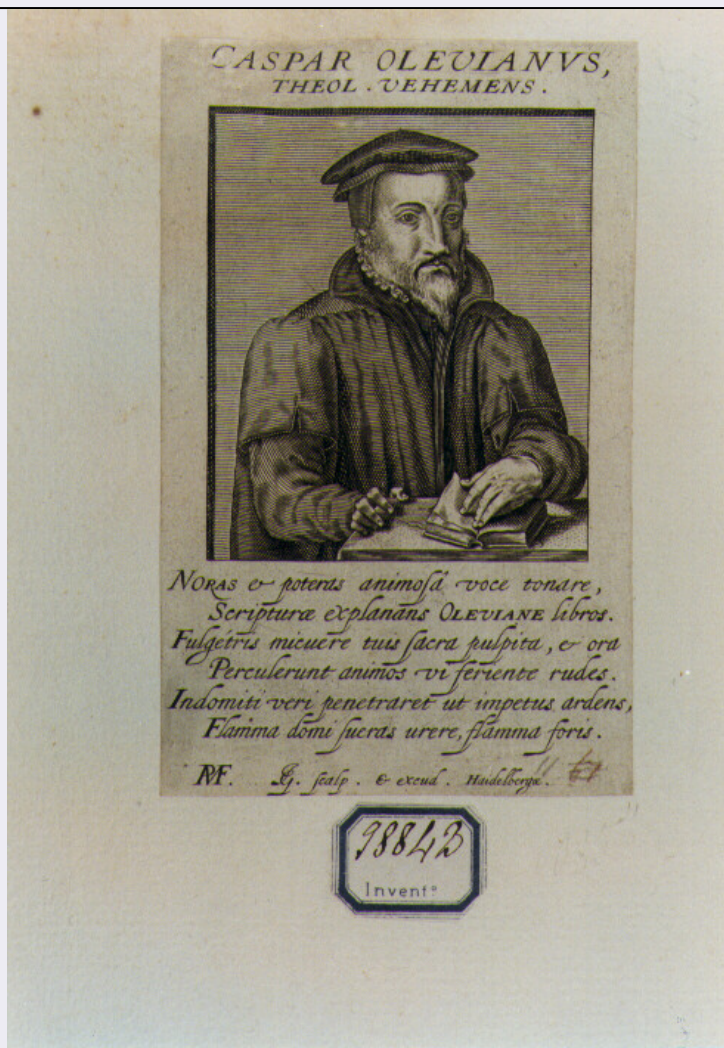 CASPAR OLEVIANVS,
THEOL. VEHEMENS.
NORAS & poteras animosâ voce tonare,
Scripturæ explanans OLEVIANE libros.
Fulgétris micuere tuis sacra pulpita, & ora
Perculerunt animos vi feriente rudes.
Indomiti veri penetraret ut impetus ardens,
Flamma domi sueras urere, flamma foris.
PMF. JG. scalp. & excud. Haidelbergæ.
98842
Invent°